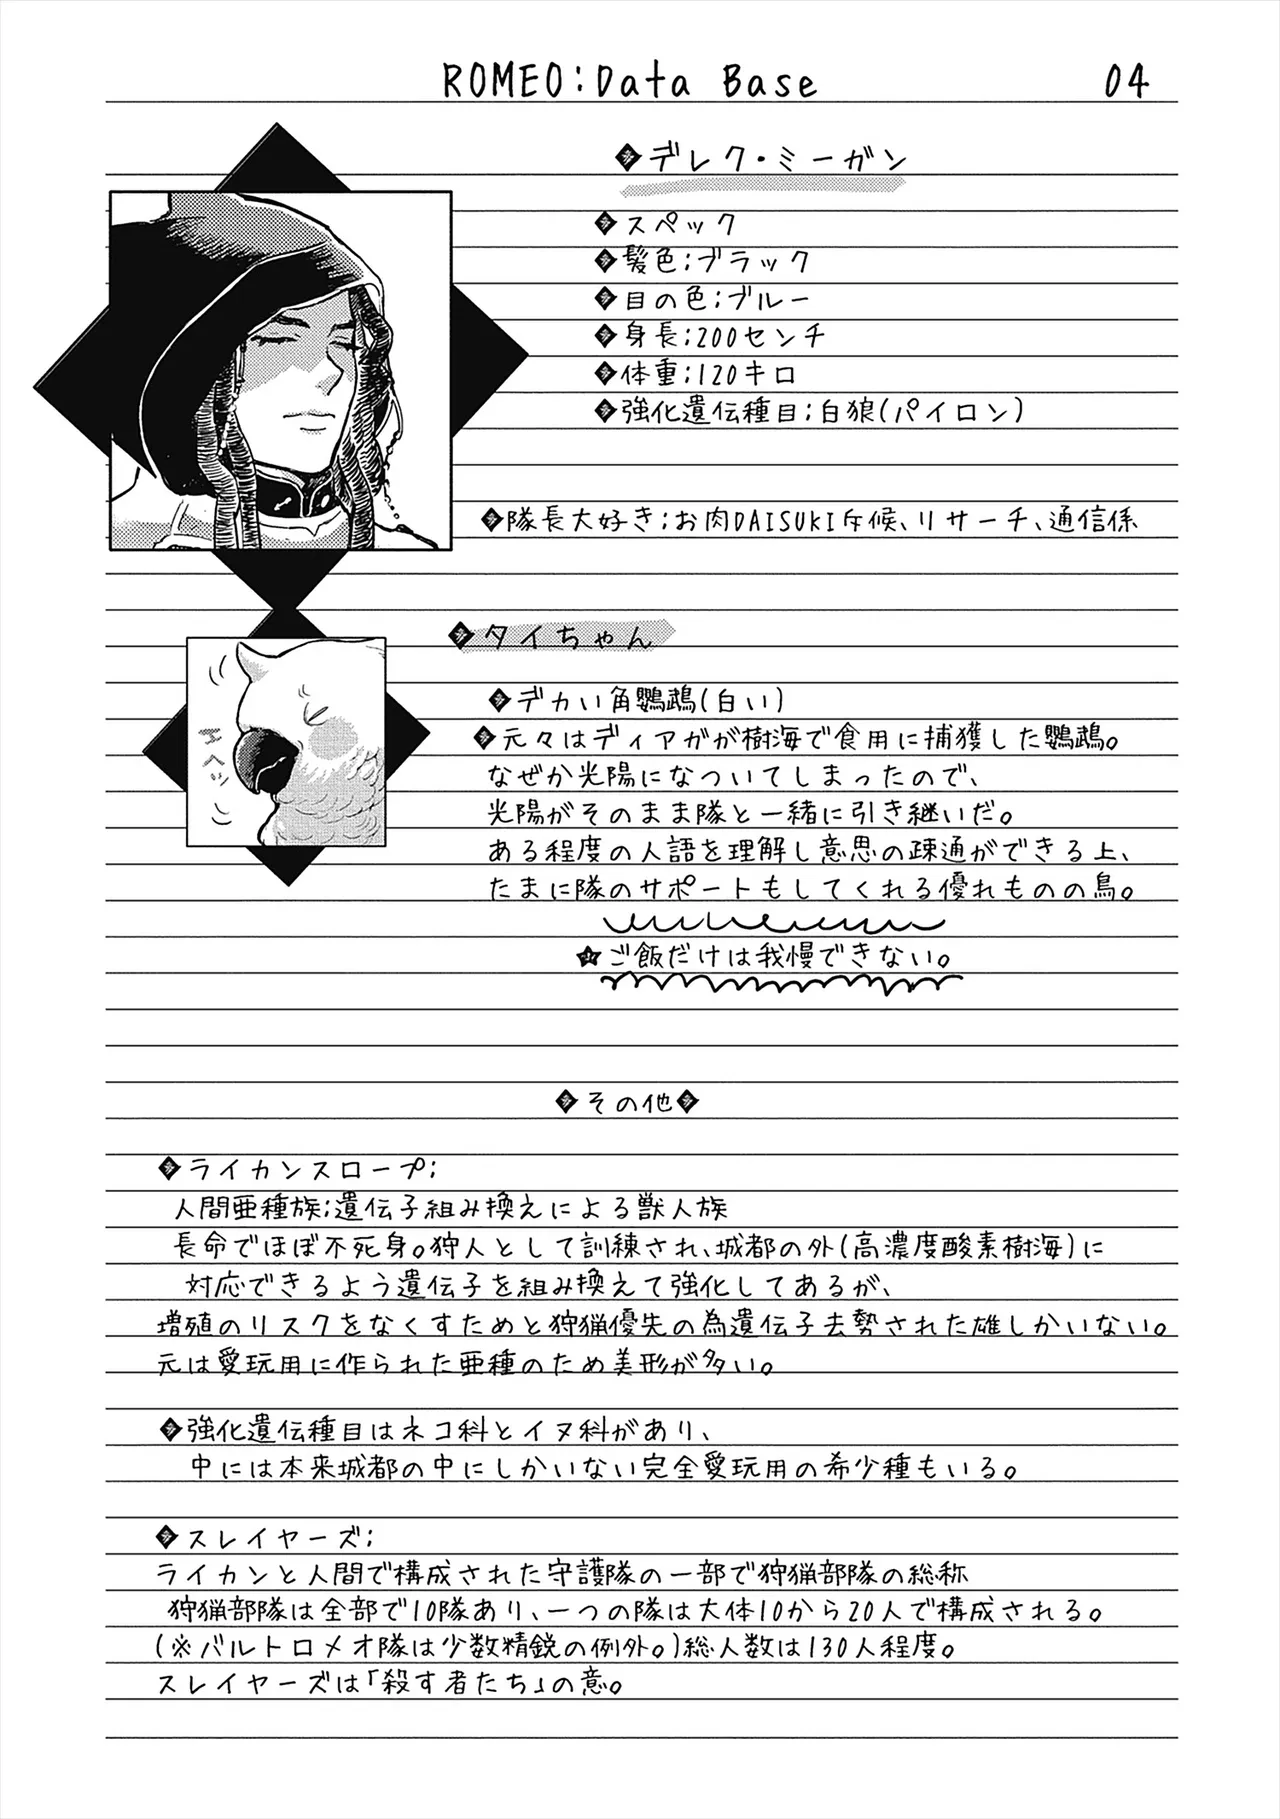 ROMEO:Data Base 04
デレク・ミーガン
スペック
髪色:ブラック
目の色:ブルー
身長:200センチ
体重:120キロ
強化遺伝種目:白狼(パイロン)
隊長大好き:お肉DAISUKI斥候、リサーチ、通信係
タイちゃん
エヘッ
デカい角鸚鵡(白い)
元々はディアガが樹海で食用に捕獲した鸚鵡。
なぜか光陽になついてしまったので、
光陽がそのまま隊と一緒に引き継いだ。
ある程度の人語を理解し意思の疎通ができる上、
たまに隊のサポートもしてくれる優れものの鳥。
ご飯だけは我慢できない。
その他
ライカンスロープ:
人間亜種族:遺伝子組み換えによる獣人族
長命でほぼ不死身。狩人として訓練され、城都の外(高濃度酸素樹海)に
対応できるよう遺伝子を組み換えて強化してあるが、
増殖のリスクをなくすためと狩猟優先の為遺伝子去勢された雄しかいない。
元は愛玩用に作られた亜種のため美形が多い。
強化遺伝種目はネコ科とイヌ科があり、
中には本来城都の中にしかいない完全愛玩用の希少種もいる。
スレイヤーズ:
ライカンと人間で構成された守護隊の一部で狩猟部隊の総称
狩猟部隊は全部で10隊あり、一つの隊は大体10から20人で構成される。
(※バルトロメオ隊は少数精鋭の例外。)総人数は130人程度。
スレイヤーズは「殺す者たち」の意。